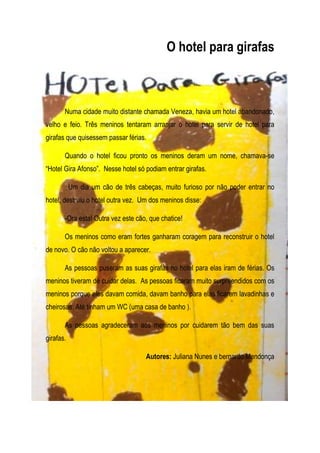 O hotel para girafas
HOTel Para Girafas
Numa cidade muito distante chamada Veneza, havia um hotel abandonado,
velho e feio. Três meninos tentaram arranjar o hotel para servir de hotel para
girafas que quisessem passar férias.
Quando o hotel ficou pronto os meninos deram um nome, chamava-se
“Hotel Gira Afonso”. Nesse hotel só podiam entrar girafas.
Um dia um cão de três cabeças, muito furioso por não poder entrar no
hotel, destruiu o hotel outra vez. Um dos meninos disse:
-Ora esta! Outra vez este cão, que chatice!
Os meninos como eram fortes ganharam coragem para reconstruir o hotel
de novo. O cão não voltou a aparecer.
As pessoas puseram as suas girafas no hotel para elas iram de férias. Os
meninos tiveram de cuidar delas. As pessoas ficaram muito surpreendidos com os
meninos porque eles davam comida, davam banho para elas ficarem lavadinhas e
cheirosas. Até tinham um WC (uma casa de banho ).
As pessoas agradeceram aos meninos por cuidarem tão bem das suas
girafas.
Autores: Juliana Nunes e bernardo Mendonça